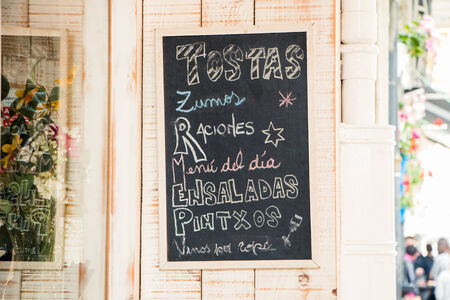 TOSTAS
Zumos
RACIONES
Menú del día
ENSALADAS
PINTXOS
Vinos por copa